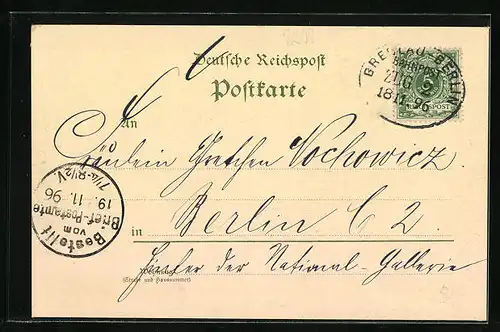 Deutsche Reichspost
Postkarte
BRESLAU-BERLIN
BAHNPOST
ZUG 2
18.11.96
REICHSPOST
An
Fräulein Gretchen Nochowicz
in Berlin C 2.
Hinter der National-Gallerie
(Straße und Hausnummer)
Bestellt
vom
Brief-Postamte
19.11.96
7¼-8½V.